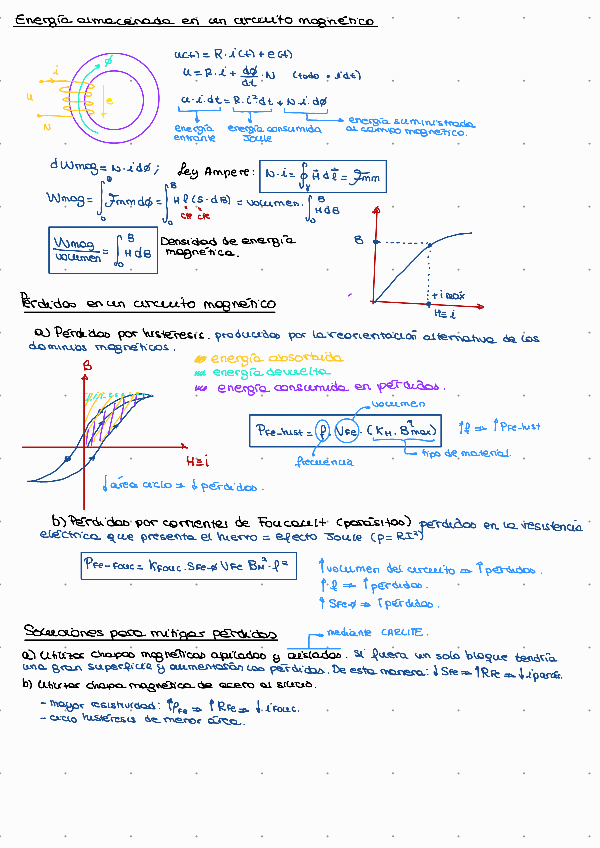 Energía almacenada en un circuito magnético
u(t) = R·i(t) + e(t)
u = R·i + dϕ/dt · N (todo = i dt)
u·i·dt = R·i²dt + N·i·dϕ
energía entrante
energía consumida Joule
energía suministrada al campo magnético.
i
ϕ
u
e
N
dWmag = N·i dϕ; Ley Ampere: N·i = ∮γ H dl = Fmm
Wmag = ∫₀ᴮ Fmm dϕ = ∫₀ᴮ H l (S·dB) = volumen · ∫₀ᴮ H dB
cte cte
Wmag/volumen = ∫₀ᴮ H dB
Densidad de energía magnética.
B
+i max
H≡i
Pérdidas en un circuito magnético
a) Pérdidas por histéresis. producidas por la reorientación alternativa de los
dominios magnéticos.
energía absorbida
energía devuelta
energía consumida en pérdidas.
B
H≡i
volumen
PFe-hist = f · VFe · (KH · B²max)
frecuencia
tipo de material
↑f ⇒ ↑PFe-hist
↓ área ciclo ⇒ ↓ pérdidas.
b) Pérdidas por corrientes de Foucault (parásitas) pérdidas en la resistencia
eléctrica que presenta el hierro = efecto Joule (P=RI²)
PFe-Fouc = KFouc · SFe-ϕ VFe BM² · f²
↑ volumen del circuito ⇒ ↑ pérdidas.
↑ f ⇒ ↑ pérdidas.
↑ SFe-ϕ ⇒ ↑ pérdidas.
Soluciones para mitigar pérdidas
mediante CARLITE.
a) Utilizar chapas magnéticas apiladas y aisladas. Si fuera un solo bloque tendría
una gran superficie y aumentarán las pérdidas. De esta manera: ↓SFe ⇒ ↑RFe ⇒ ↓i parás.
b) Utilizar chapa magnética de acero al silicio.
- mayor resistividad: ↑ρFe ⇒ ↑RFe ⇒ ↓iFouc.
- ciclo histéresis de menor área.